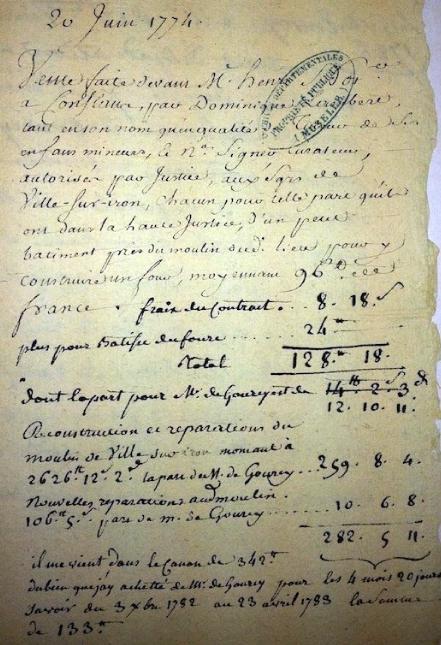 20 Juin 1774.
Vente faite devant Mr. hen
a Conflans, par Dominique
tant en son nom qu'en qualité de
enfans mineurs, le Nre. Signor Curateur,
autorisée par Justice, aux Sgrs de
Ville-sur-iron, chacun pour telle part qu'ils
ont dans la haute Justice, d'un petit
batiment près du moulin dud. lieu pour y
construire un four, moyennant 96 de
france. fraix du Contrat . . 8. 18. s
plus pour Batisse du foure . . . . 24
Total 128. 18.
dont la part pour Mr. de Gourcy est de 14 2 3 d
12. 10. 11.
Reconstruction et reparations du
moulin de Ville sur iron montant à
2626tt 12s. 2d la part de M. de Gourcy . . . 259. 8. 4.
Nouvelles reparations aud. moulin.
106tt 5s. part de m. de Gourcy . . . . 10. 6. 8.
282. 5 11.
il me vient dans le Canon de 342tt
du bien que j'ay achetté de Mr. de Gourcy pour les 4 mois 20 jours
savoir du 3 xbre 1782 au 23 avril 1783 la Somme
de 133tt
ARCHIVES DEPARTEMENTALES
MOSELLE